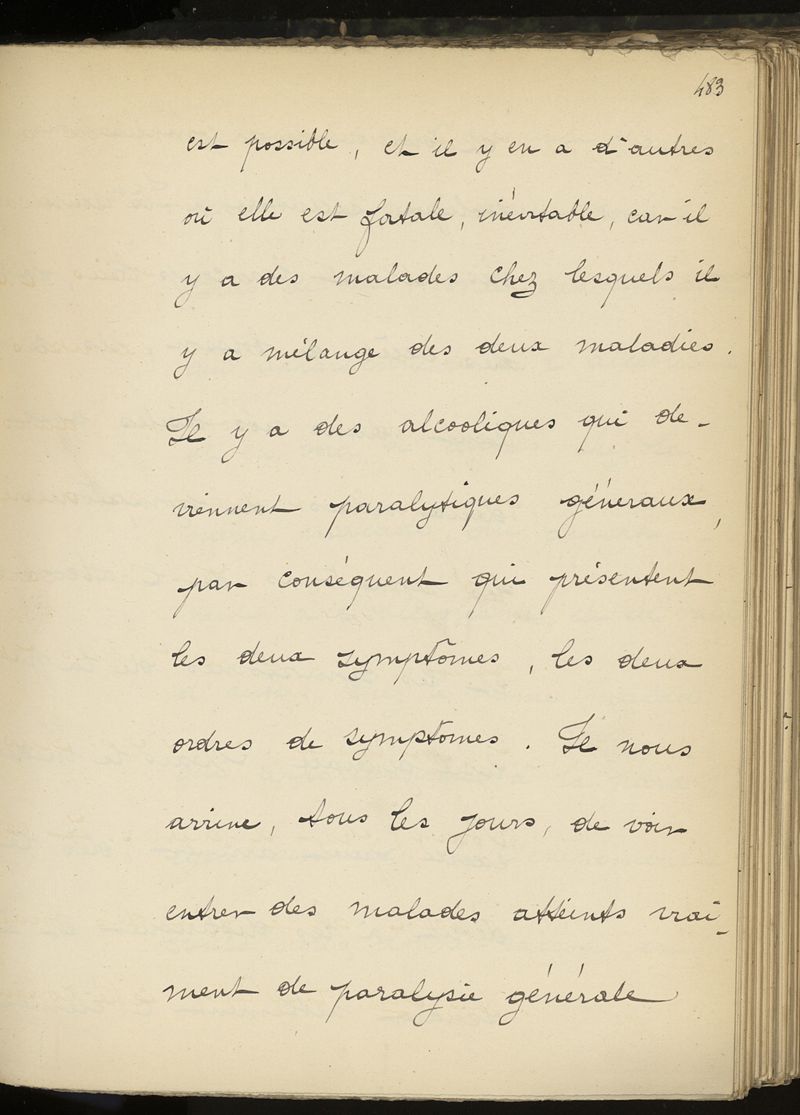 483
est possible, et il y en a d'autres
où elle est fatale, inévitable, car il
y a des malades chez lesquels il
y a mélange des deux maladies.
Il y a des alcooliques qui de-
viennent paralytiques généraux,
par conséquent qui présentent
les deux symptômes, les deux
ordres de symptômes. Il nous
arrive, tous les jours, de voir
entrer des malades atteints vrai-
ment de paralysie générale